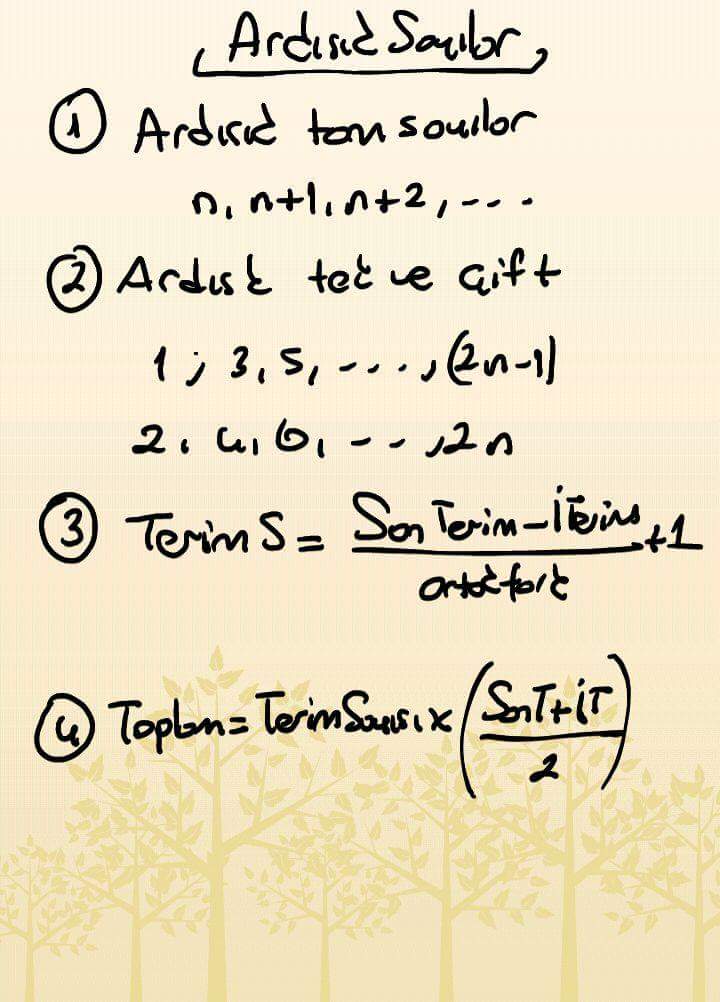 Ardışık Sayılar
① Ardışık tam sayılar
n, n+1, n+2, ---
② Ardışk tek ve çift
1, 3, 5, ----, (2n-1)
2, 4, 6, ---, 2n
③ Terim S = (Son Terim - İ Terim)/(ortak fark) + 1
④ Toplam = Terim Sayısı x ((Son T + İT)/2)